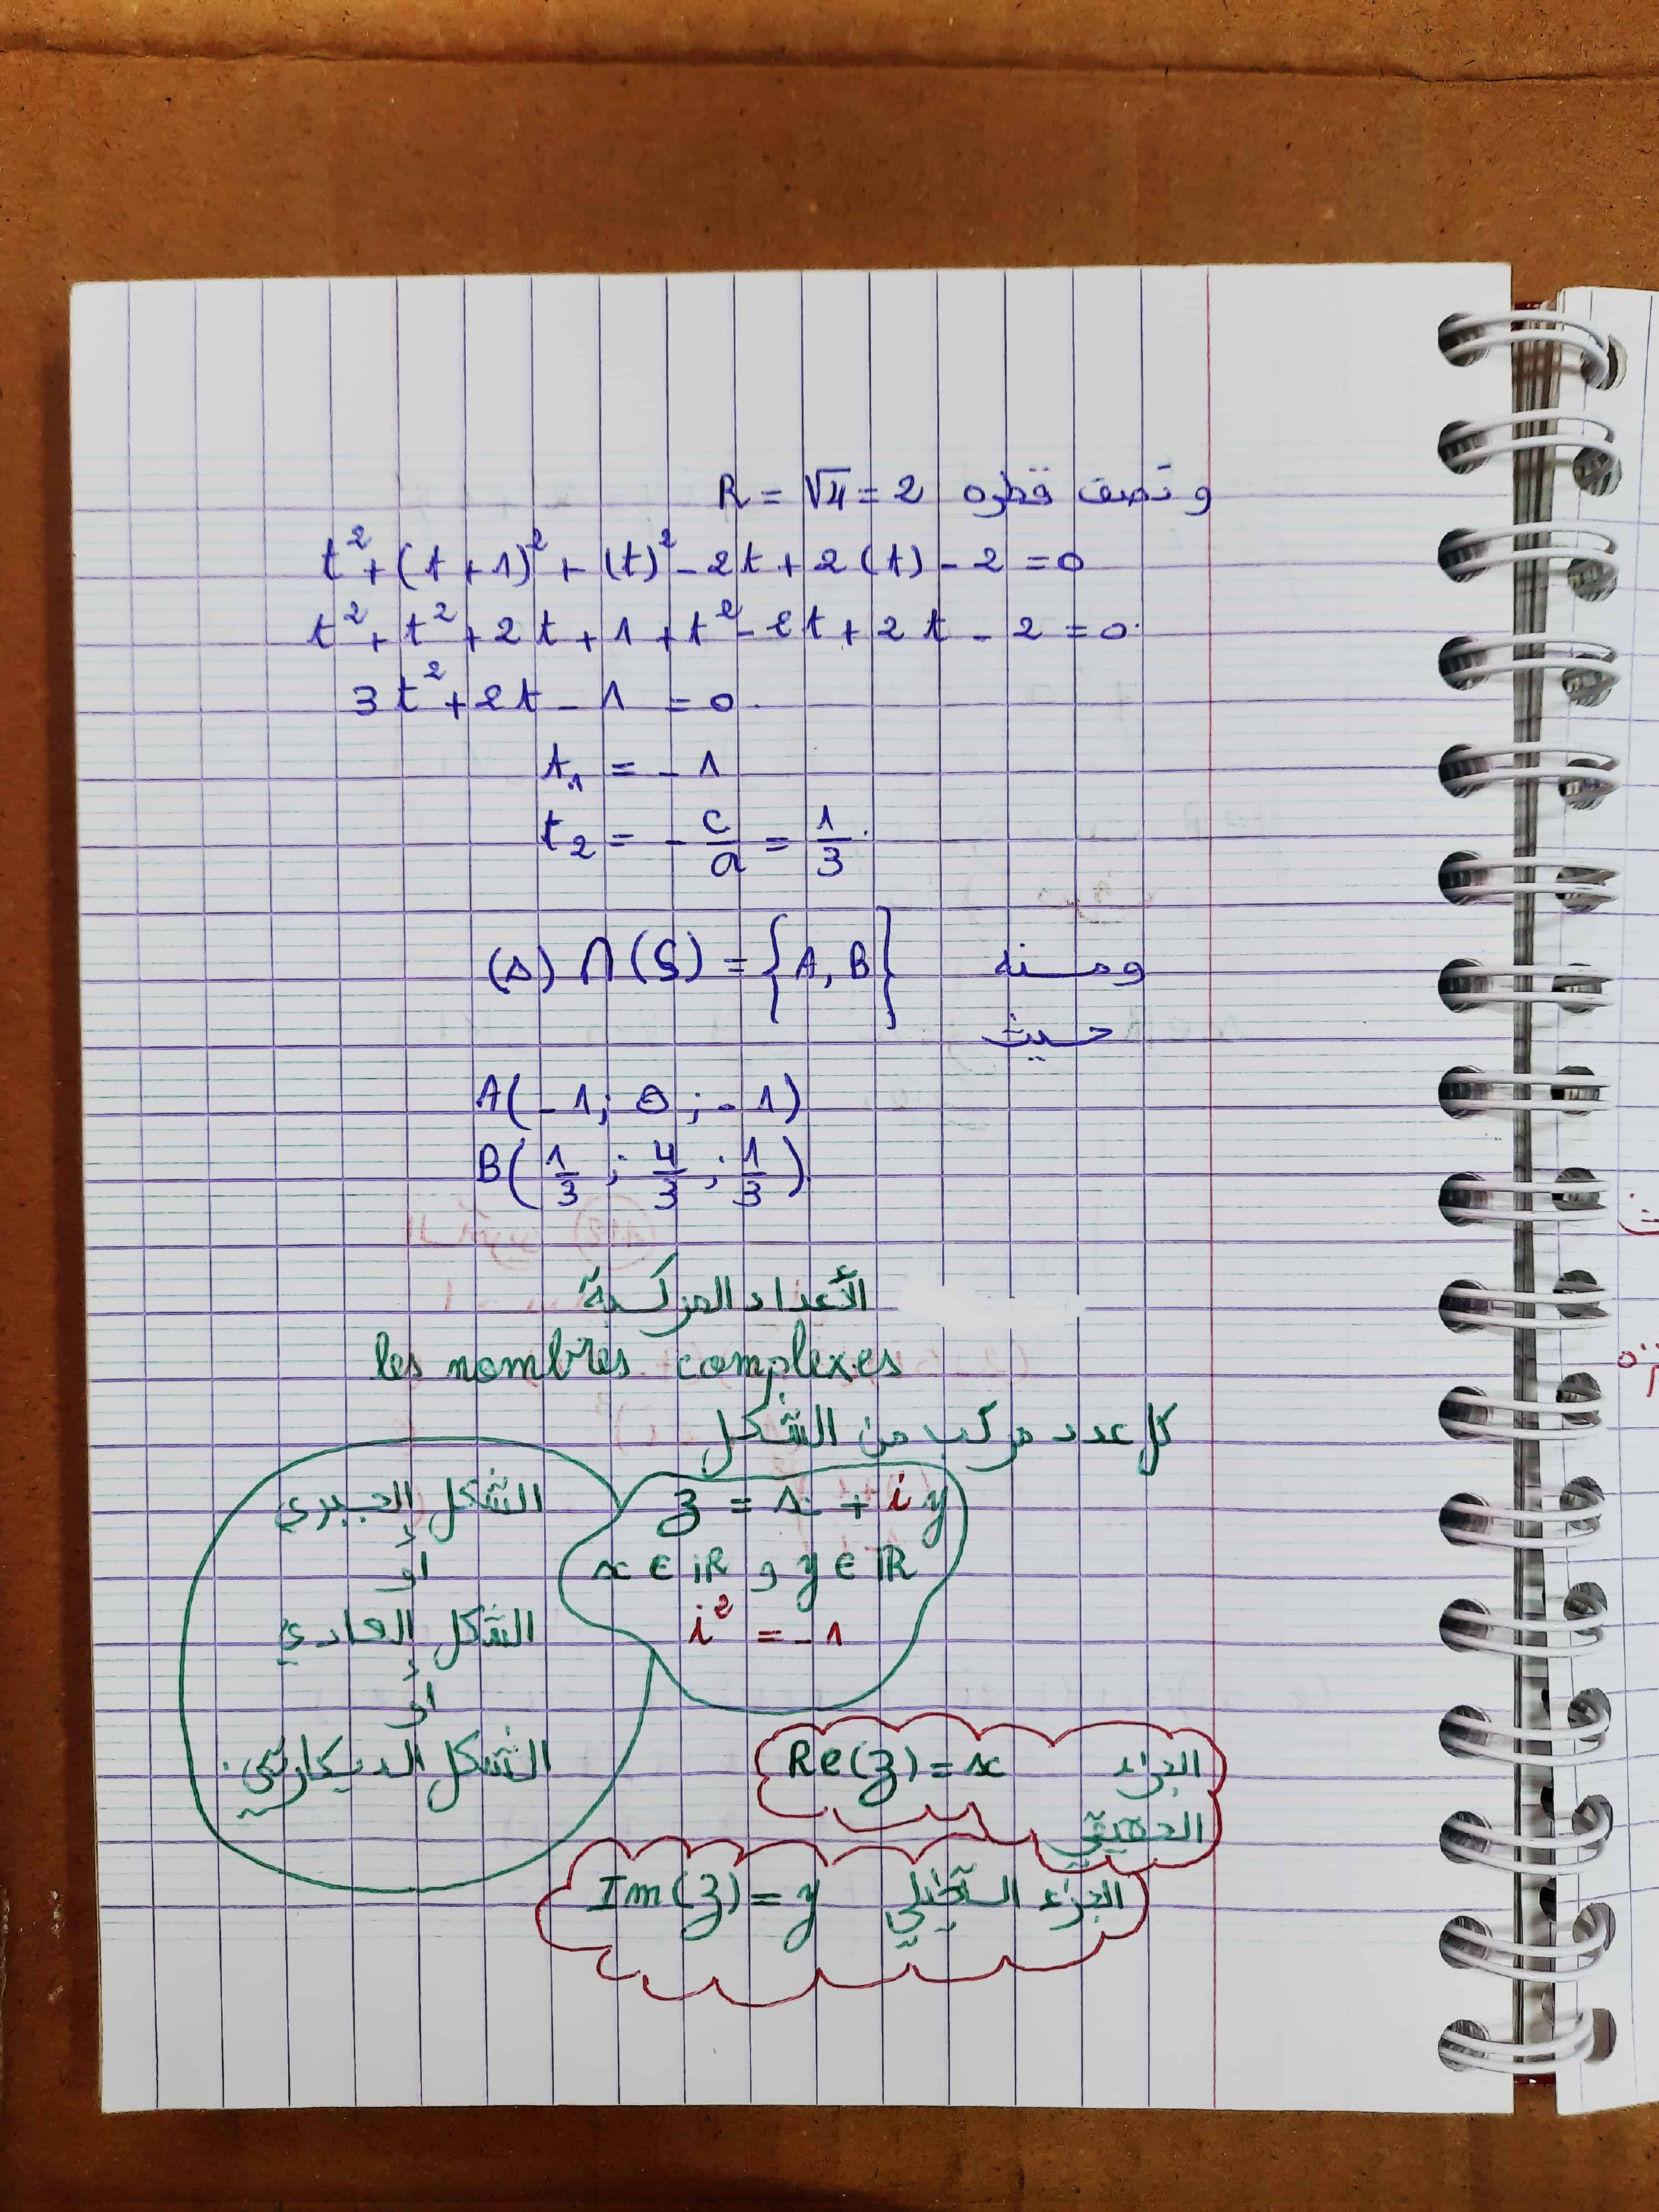 و نصف قطره R = √4 = 2
t² + (t + 1)² + (t)² - 2t + 2(t) - 2 = 0
t² + t² + 2t + 1 + t² - 2t + 2t - 2 = 0
3t² + 2t - 1 = 0
t₁ = - 1
t₂ = - c/a = 1/3
ومنه (Δ) ∩ (S) = {A, B}
حيث
A(-1; 0; -1)
B(1/3; 4/3; 1/3)
الأعداد المركبة
les nombres complexes
كل عدد مركب من الشكل
z = x + iy
x ∈ ℝ و y ∈ ℝ
i² = -1
الشكل الجبري
أو
الشكل العادي
أو
الشكل الديكارتي.
الجزء Re(z) = x
الحقيقي
الجزء التخيلي Im(z) = y